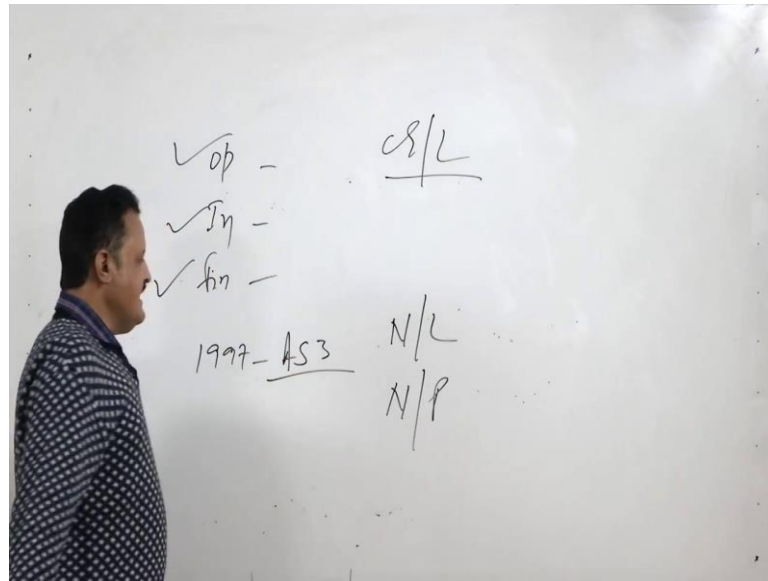 ✓ op -
✓ In -
✓ fin -
1997 - AS3
N/L
N/P